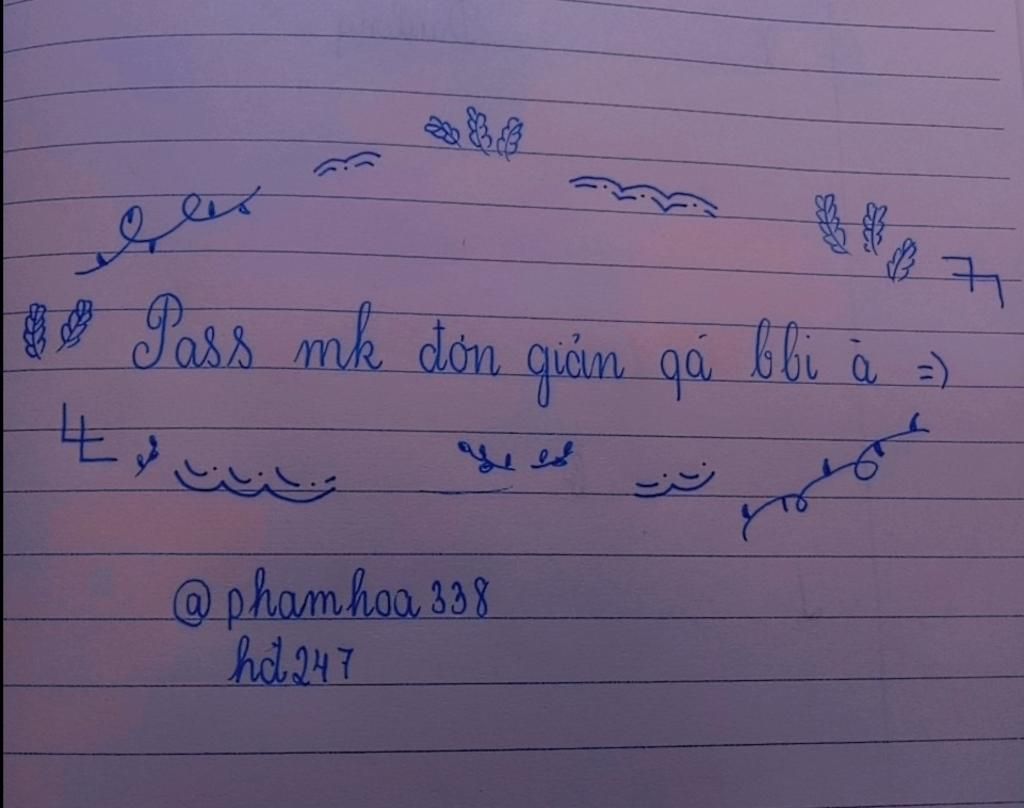 Pass mk đơn giản qá bbi à =)
@phamhoa338
hđ247